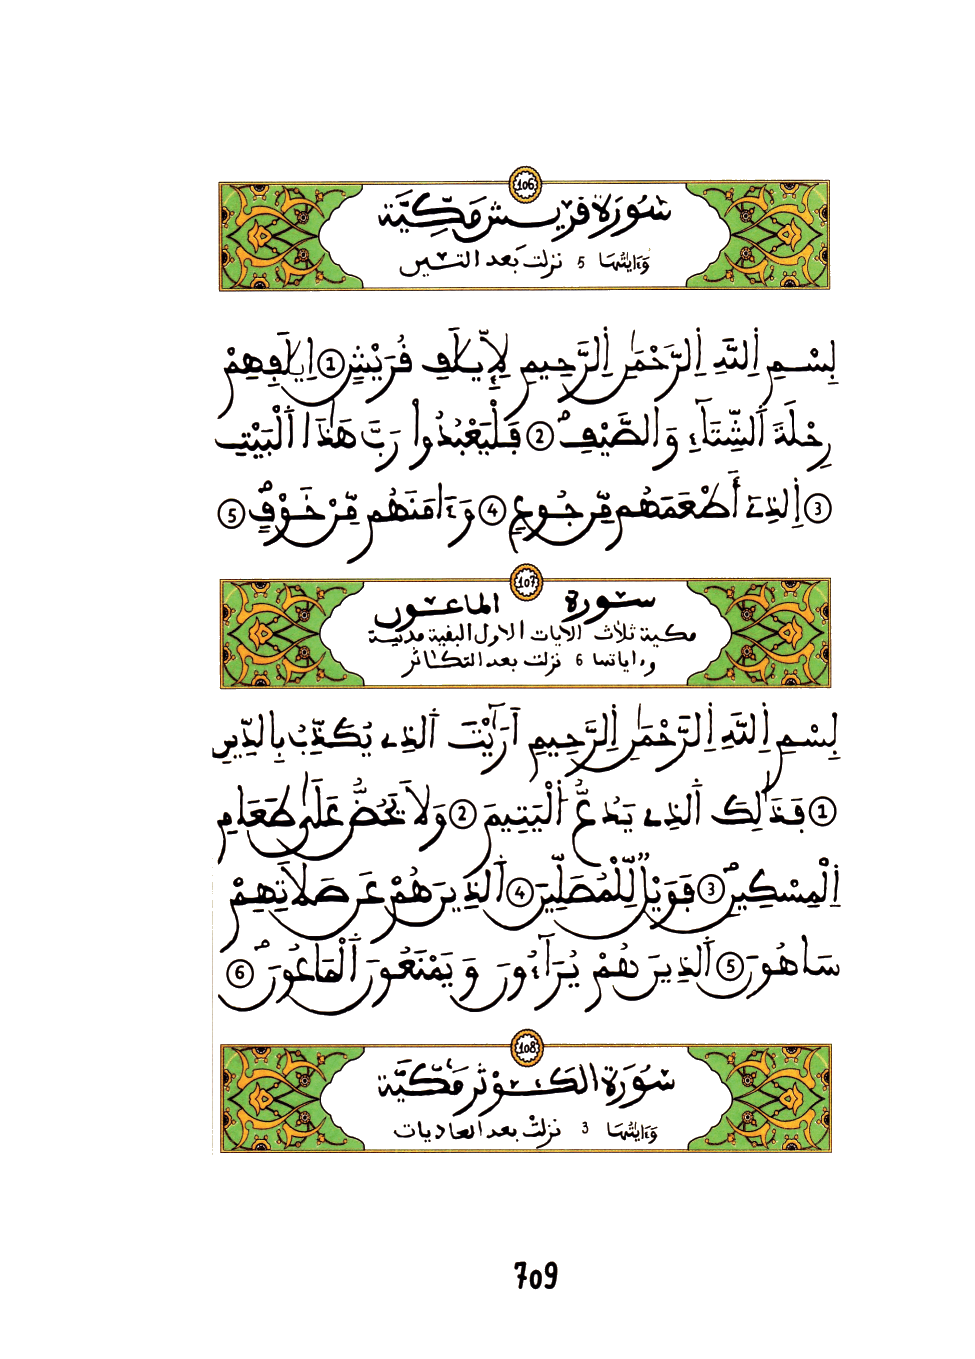 106
سُورَة قريش مَكِّيَّة
وَءَايَتُهَا 5 نزلت بَعد التين
بِسْمِ اِللَّهِ اِلرَّحْمَٰنِ اِلرَّحِيمِ لِإِيلَٰفِ قُرَيْشٍ 1 اِۦلَٰفِهِمْ
رِحْلَةَ اَلشِّتَآءِ وَالصَّيْفِ 2 فَلْيَعْبُدُواْ رَبَّ هَٰذَا اَلْبَيْتِ
3 اِلذِے أَطْعَمَهُم مِّن جُوعٍ 4 وَءَامَنَهُم مِّنْ خَوْفٍ 5
107
سورة الماعون
مكية ثلاث الآيات الاول البقية مدنية
وءاياتها 6 نزلت بعد التكاثر
بِسْمِ اِللَّهِ اِلرَّحْمَٰنِ اِلرَّحِيمِ أَرَٰيْتَ اَلذِے يُكَذِّبُ بِالدِّينِ
1 فَذَٰلِكَ اَلذِے يَدُعُّ اُلْيَتِيمَ 2 وَلَا يَحُضُّ عَلَىٰ طَعَامِ
اِلْمِسْكِينِ 3 فَوَيْلٌ لِّلْمُصَلِّينَ 4 اَلذِينَ هُمْ عَن صَلَاتِهِمْ
سَاهُونَ 5 اَلذِينَ هُمْ يُرَآءُونَ وَيَمْنَعُونَ اَلْمَاعُونَ 6
108
سُورَة الكَوْثر مَكِّيَّة
وَءَايَتُهَا 3 نزلتْ بعد العاديات
709